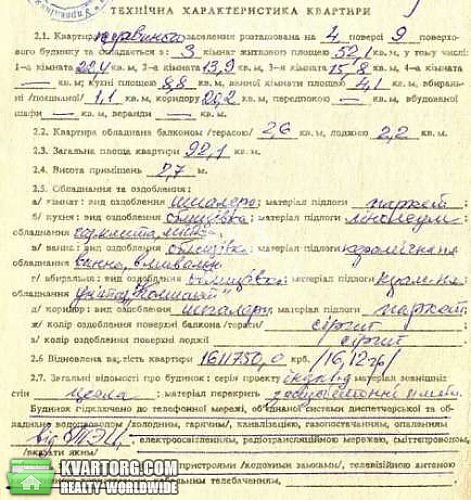 ТЕХНІЧНА ХАРАКТЕРИСТИКА КВАРТИРИ
2.1. Квартира первинного заселення розташована на 4 поверсі 9 поверхо-
вого будинку та складається з 3 кімнат житловою площею 52,1 кв. м, у тому числі:
1-а кімната 22,4 кв. м, 2-а кімната 13,9 кв. м, 3-я кімната 15,8 кв. м, 4-а кімната
— кв. м; кухні площею 8,8 кв. м, ванної кімнати площею 4,1 кв. м, вбираль-
ні /поєднаної/ 1,1 кв. м, коридору 20,2 кв. м, передпокою — кв. м, вбудованої
шафи — кв. м, веранди — кв. м.
2.2. Квартира обладнана балконом /терасою/ 2,6 кв. м, лоджією 2,2 кв. м.
2.3. Загальна площа квартири 92,1 кв. м.
2.4. Висота приміщень 2,7 м.
2.5. Обладнання та оздоблення:
а/ кімнат: вид оздоблення шпалери; матеріал підлоги паркет
б/ кухня: вид оздоблення облицівка; матеріал підлоги лінолеум
обладнання
в/ ванна: вид оздоблення облицівка; матеріал підлоги керамічна пл
обладнання ванна, вмивальн
г/ вбиральня: вид оздоблення облицівка; матеріал підлоги
обладнання унітаз "Компакт"
д/ коридор: вид оздоблення шпалери; матеріал підлоги паркет
ж/ колір оздоблення поверхні балкона /тераси/
з/ колір оздоблення поверхні лоджії
2.6 Відновлена вартість квартири 1611750,0 крб. /16,12 гр/
2.7. Загальні відомості про будинок: серія проекту інд матеріал зовнішніх
стін цегла; матеріал перекрить залізобетонні плити
Будинок підключено до телефонної мережі, об'єднаної системи диспетчерської та об-
ладнано водопроводом /холодним, гарячим/, каналізацією, газопостачанням, опаленням
від ТЭЦ, електроосвітленням, радіотрансляційною мережею, сміттєпроводом,
/вказати яким/
пристроями /кодовими замками/, телевізійною антеною
телебаченням,
KVARTORG.COM
REALTY-WORLDWIDE